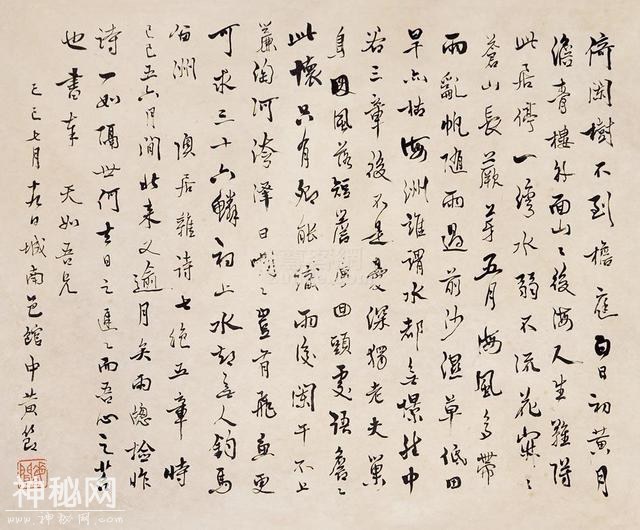 倚闌樹不到檐 百日初黃月
澹青樓外面山、後海人生難得
此居停一灣水弱不流花寂、
蒼山長蕨芽五月海風多帶
雨亂帆隨雨過前沙濕草低田
旱亦枯海洲誰謂水都無 中
若三章後不是憂深獨老夫巢
國風落短簷 回頭更語詹、
此懷只有卿能識雨後闌干不上
簾淘河 澤日 豈肯飛魚更
可求三十六鱗初上水却無人釣馬
洲 澳居雜詩七絕五章時
己巳五六月間北來又逾月矣雨窗撿昨
詩一如隔世何去日之 、而吾心之苦
也書奉 天如吾兄
己巳七月 日城南邑館中黃節
神秘网